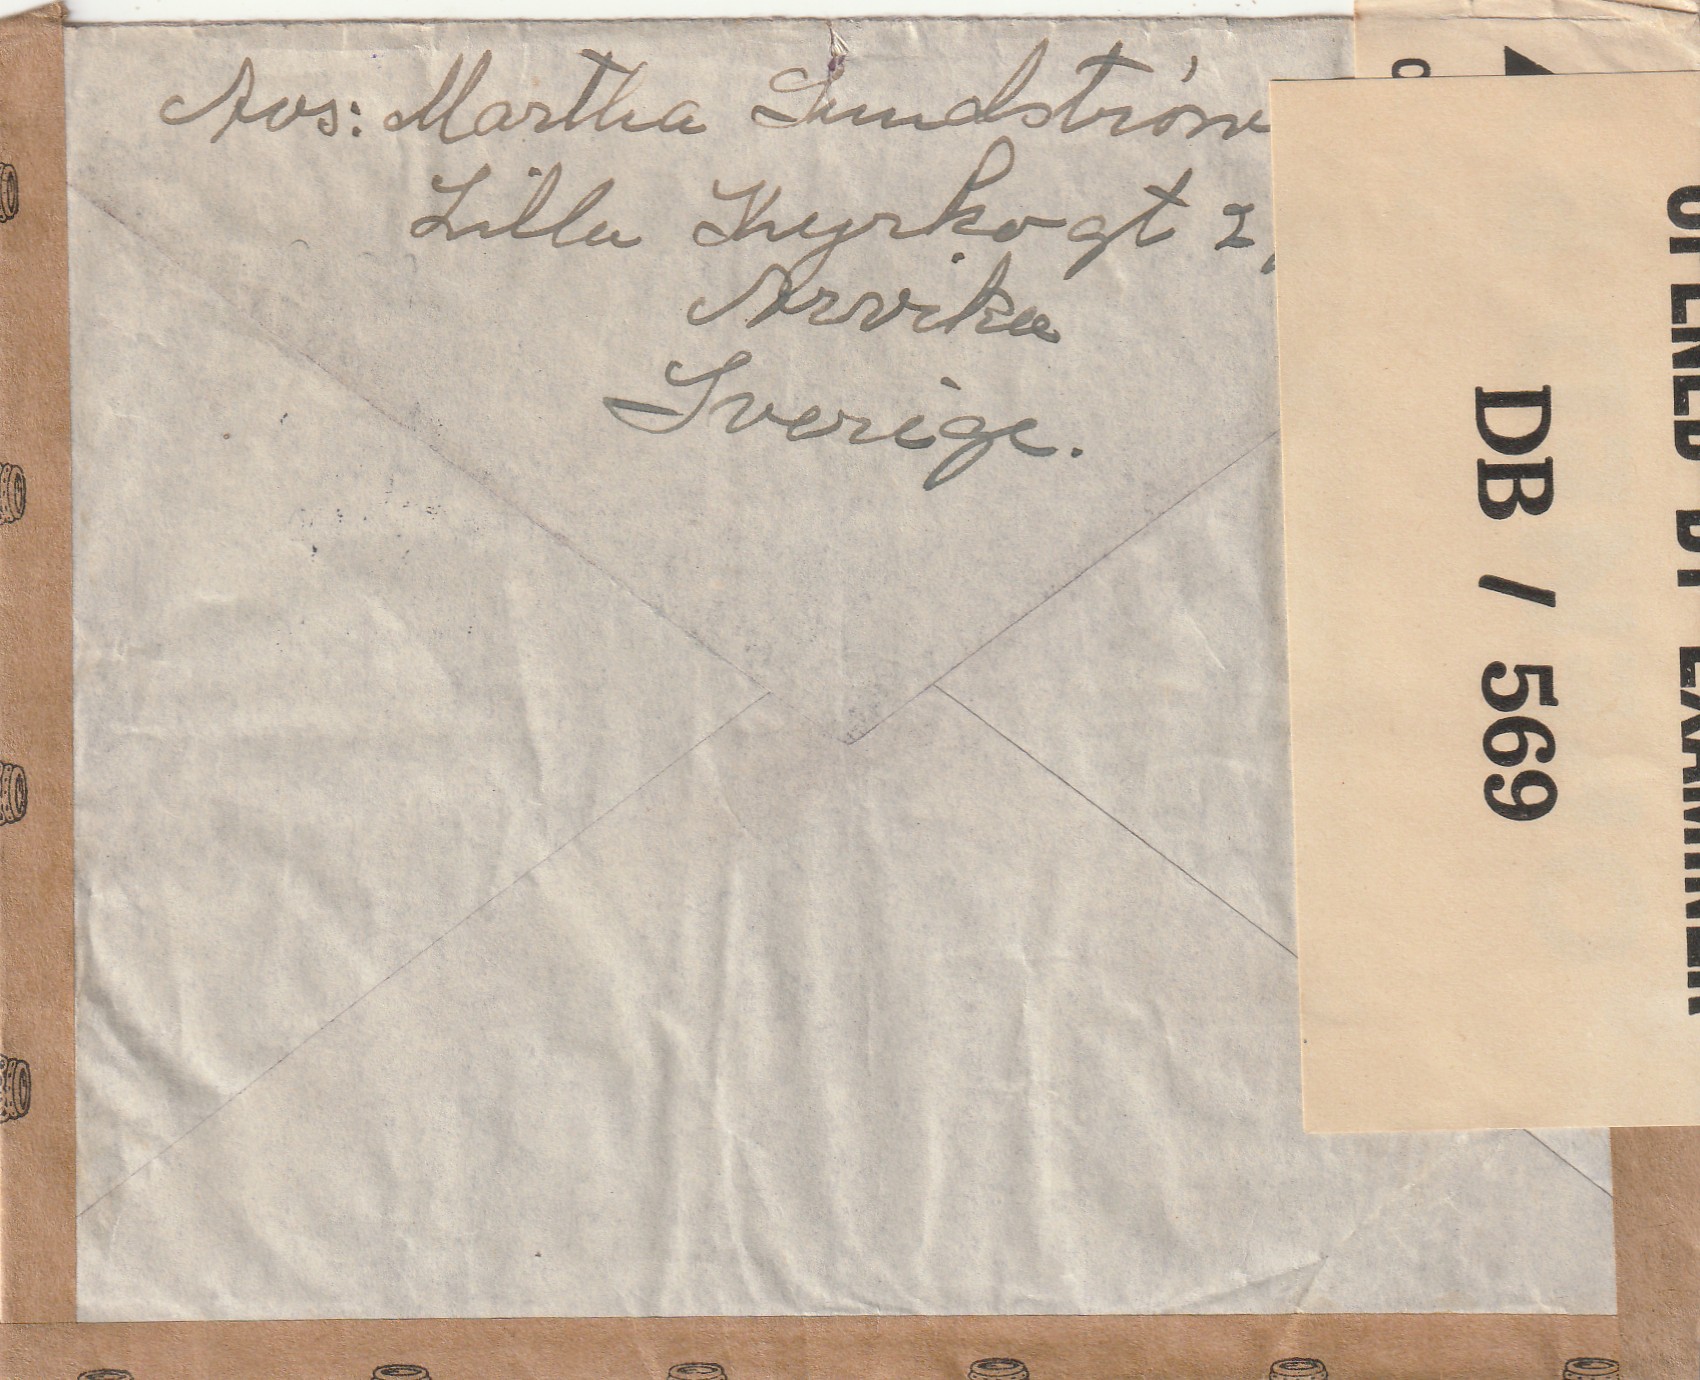 Avs: Martha Sundström
Lilla Kyrkogt 2
Arvika
Sverige.
OPENED BY EXAMINER
DB / 569